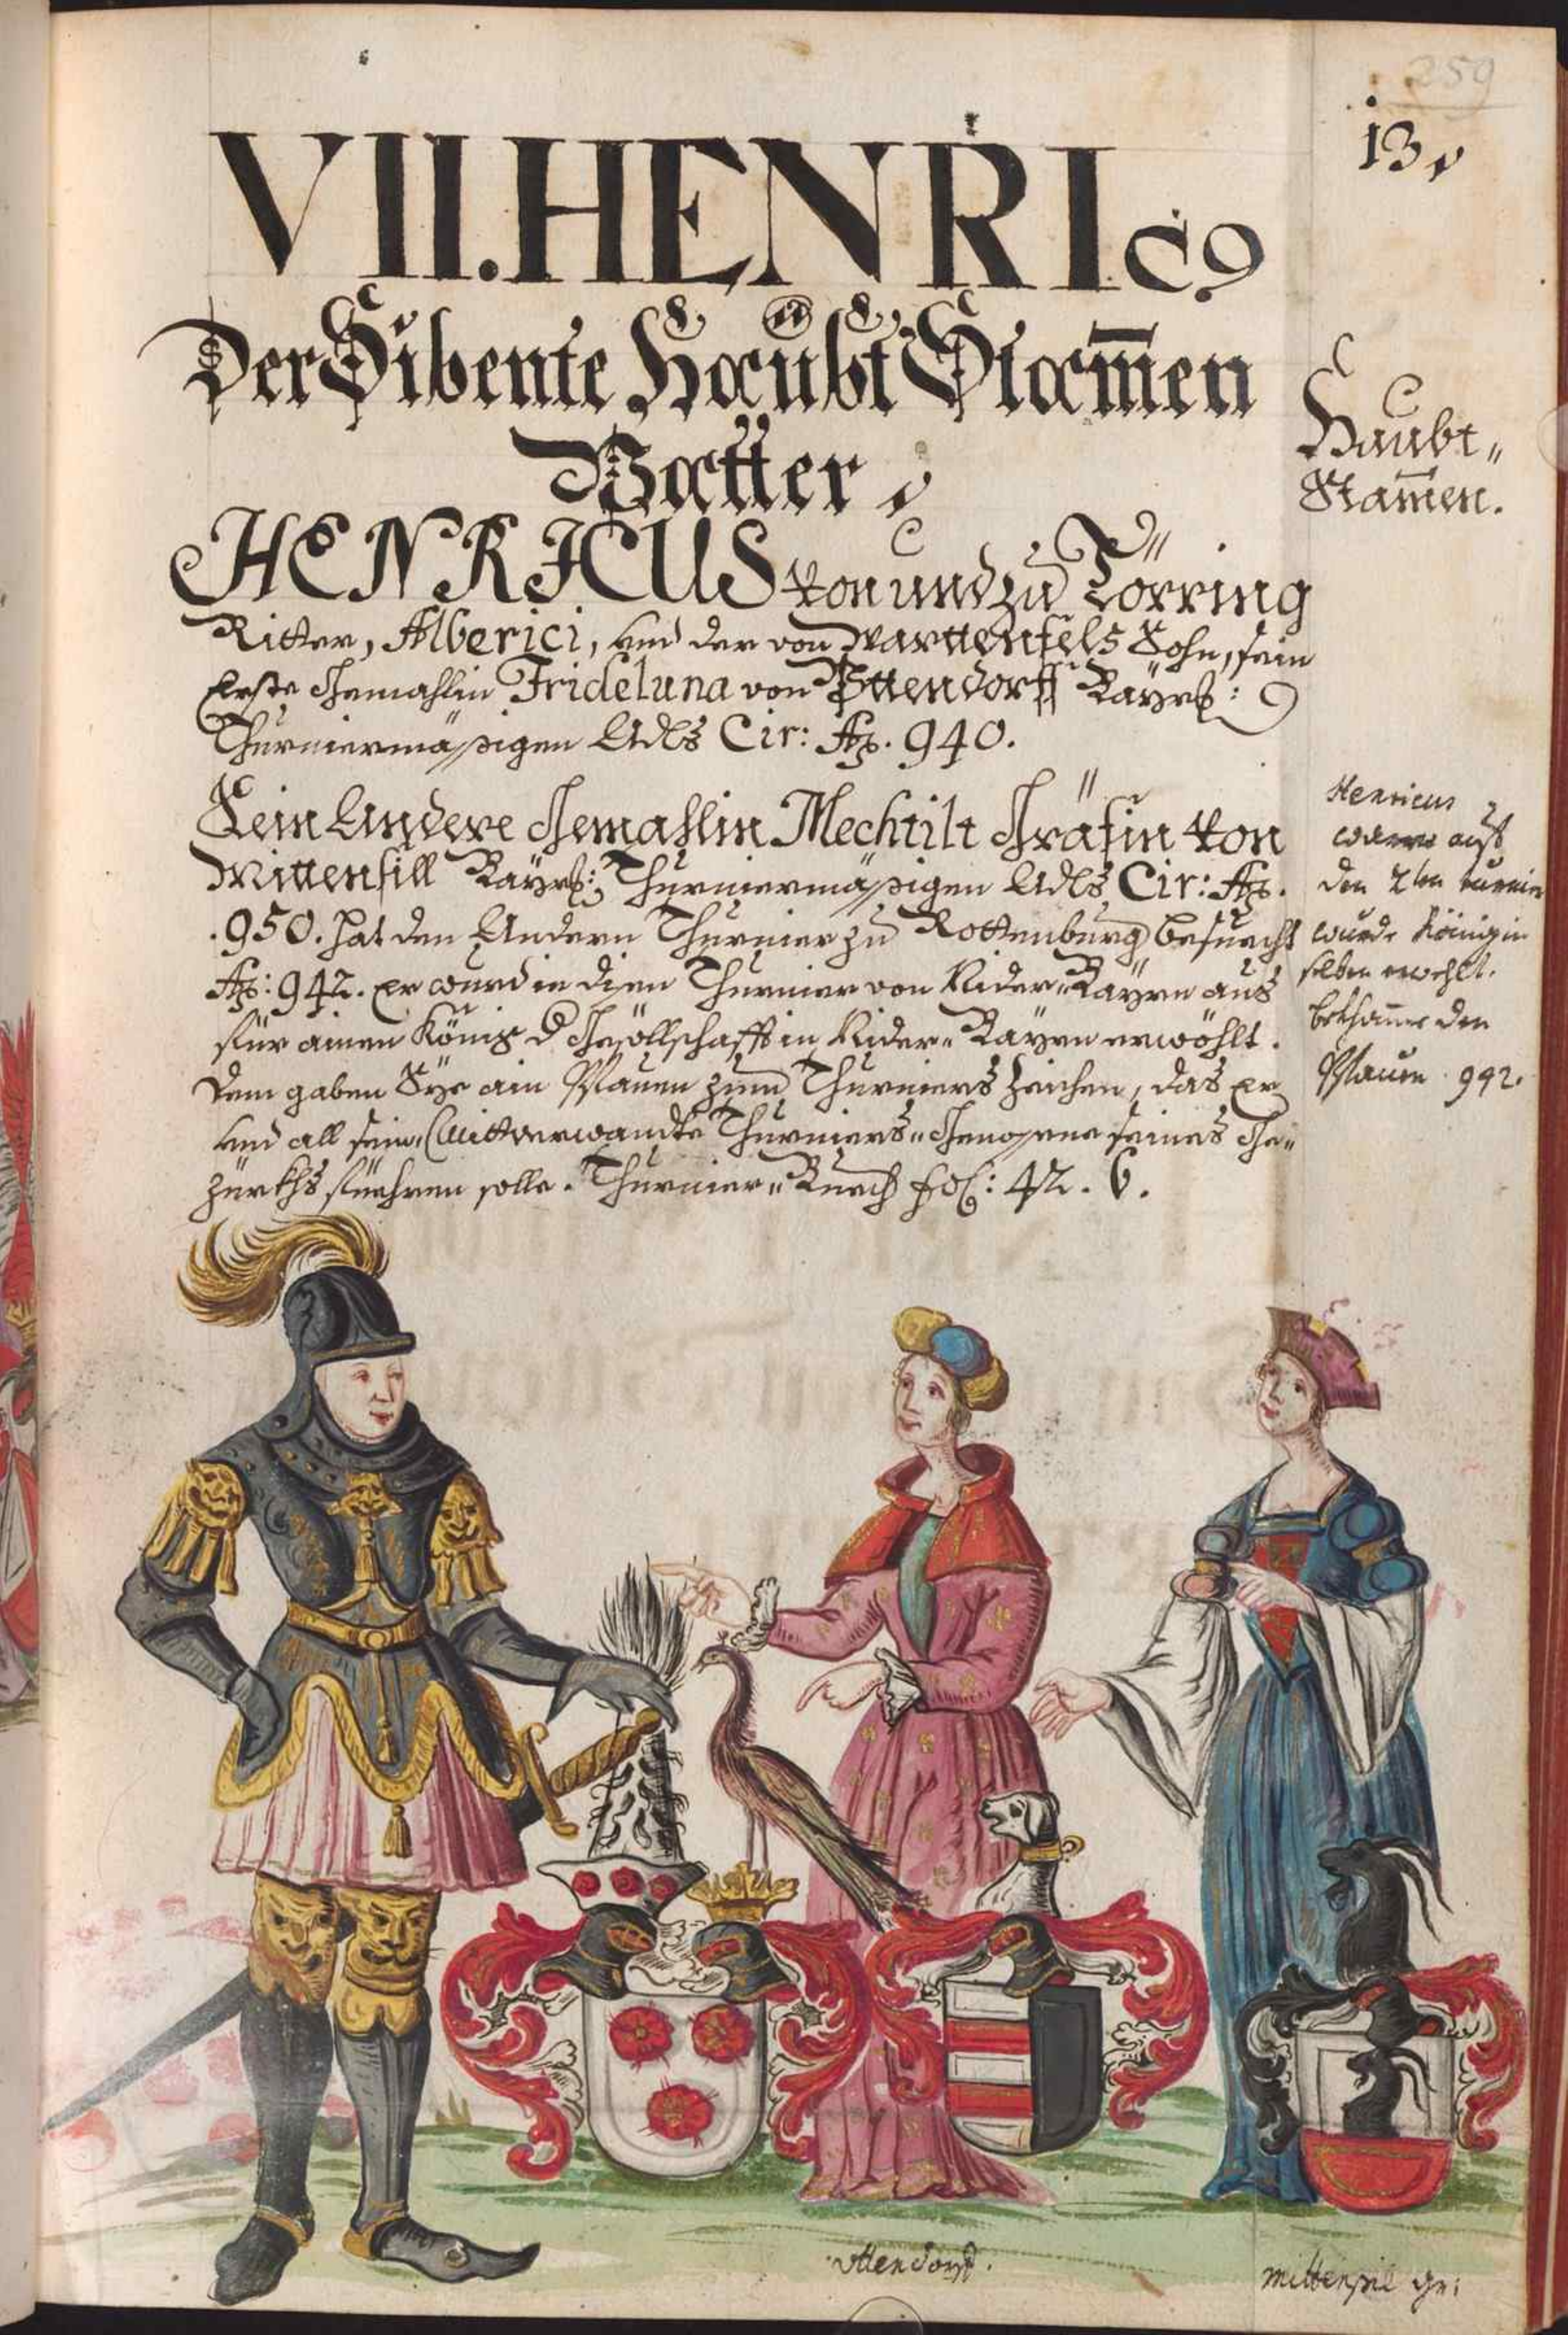 259
13.
VII. HENRIC9
Der Sibente Haubt Stam̄en
Vatter.
Haubt„
Stam̄en.
HENRICUS von und zu Törring
Ritter, Alberici, und der von Warttenfels Sohn, sein
Erste Gemahlin Frideluna von Uttendorff Bayrß:
Thurniermäßigen Adls Cir: Aō. 940.
Sein Andere Gemahlin Mechtilt Gräfin von
Mittersill Bayrß: Thurniermäßigen Adls Cir: Aō.
.950. hat den Andern Thurnier zu Rottenburg besuecht
Aō: 942. Er wurd in disen Thurnier von Nider„Bayrn aus
für ainen König d Gesöllschafft in Nider„Bayrn erwöhlt.
dem gaben Sye ain Pfauen zum Thurniers Zaichen, das Er
und all sein„Mittverwandte Thurniers„Genossene seines Ge„
zürkhs füehren solle. Thurnier„Buech fol: 42. 6.
Henricus
auf
den 2ten turnier
wurde König in
selben erwehlt.
bekham̄e den
Pfauen 942.
Uttendorf.
Mittersil gr: